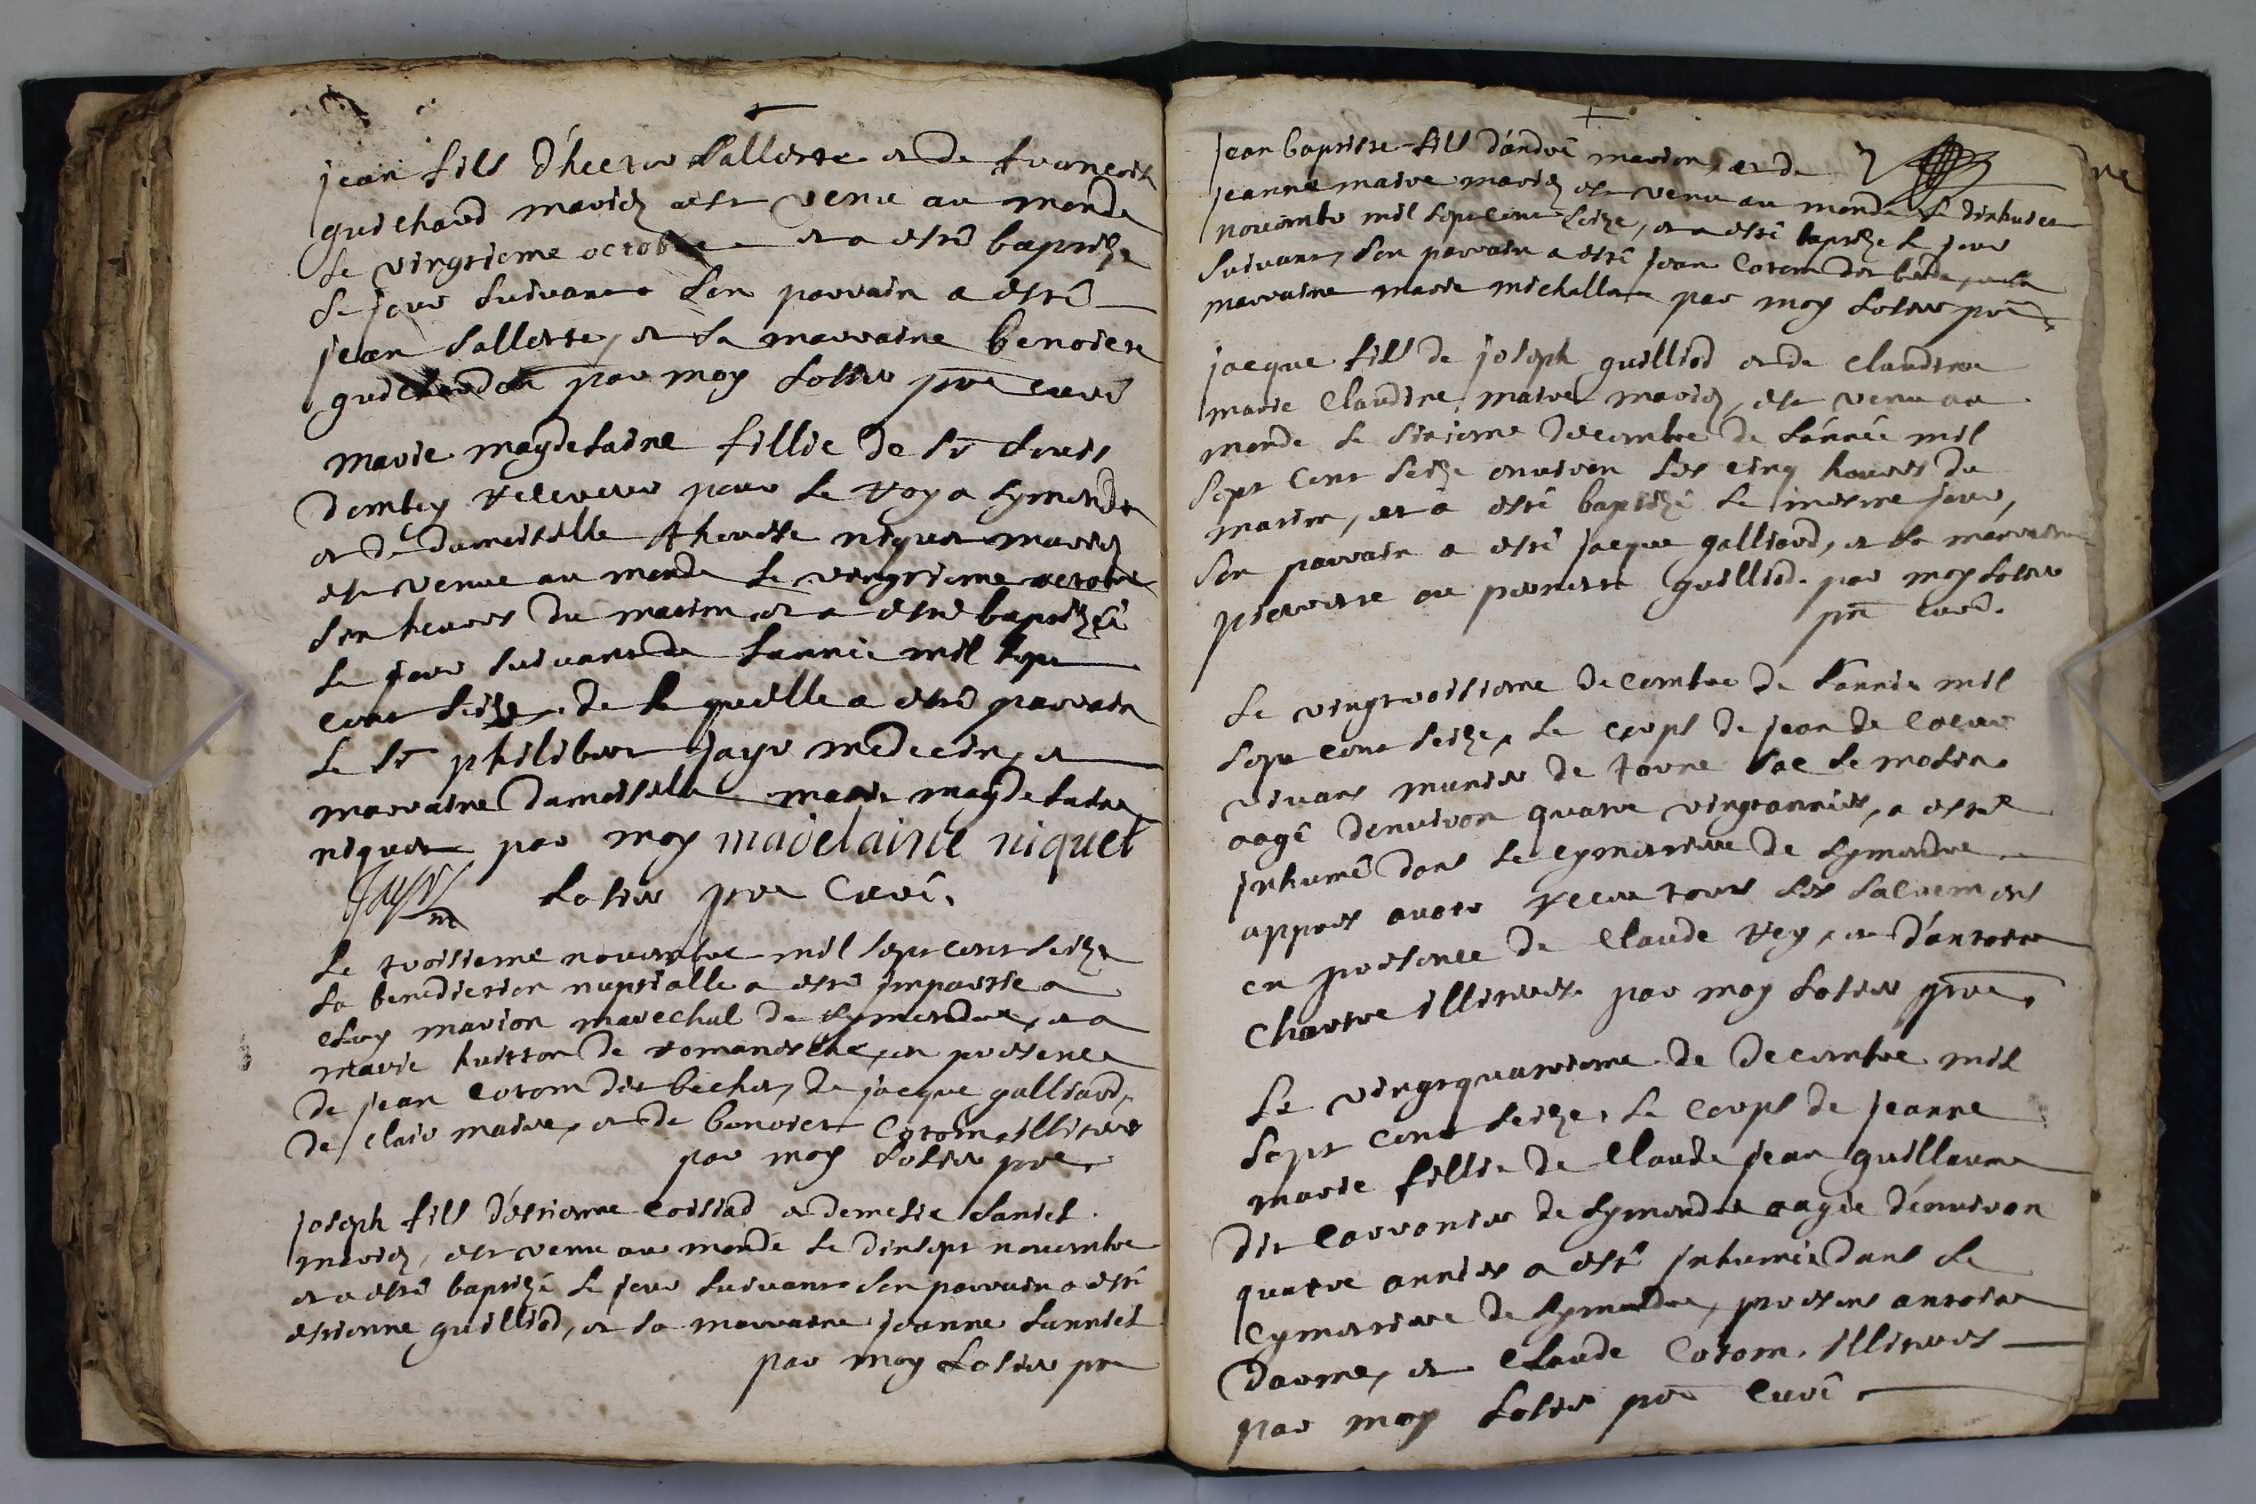 jean fils d'hector Sallette et de francoise
guichard mariez est venu au monde
le vingtieme octobre et a esté baptizé
le jour suivant son parrain a esté
jean Sallette, et sa marraine benoiste
par moy pre curé
marie magdelaine fillie de sr Louis
receveur pour le roy a Symandre
et de damoiselle therese niquet mariez
est venue au monde le vingtieme octobre
heures du matin et a esté baptizée
le jour suivant de lannée mil sept
cent seize, de la quelle a esté parrain
le sr philibert jayr medecin, et
marraine damoiselle marie magdelaine
niquet par moy madelainne niquet
pre Curé.
Le troisieme novembre mil sept cent seize
la benediction nuptialle a esté impartie a
marion marechal de Symandre, et a
marie de romanesche, en presence
de jean Cotom dit bechet, de jacque galliard,
de clair maire, et de benoist Cotom illiteres
par moy pre
joseph fils d'estienne coissiad et
mariez, est venu au monde le dixsept novembre
et a esté baptizé le jour suivant son parrain a esté
estienne guilliod, et sa marraine jeanne
par moy pre
jean baptiste fils d'andré marion, et de
jeanne maire mariez est venu au monde le dixhuict
novembre mil sept cent seize, et a esté baptizé le jour
suivant, son parrain a esté jean Cotom et sa
marraine marie par moy pre
jacque fils de joseph guilliod et de claudine
marie Claudine maire mariez, est venu au
monde le sixieme decembre de l'année mil
sept cent seize environ les cinq heures du
matin, et a esté baptizé le mesme jour,
son parrain a esté jacque galliard, et sa marraine
pierrette ou pernette guilliod. par moy
pre curé.
Le vingtroisieme decembre de l'année mil
sept cent seize, le corps de jean de
vivant munier de
aagé denviron quatre vingt années, a esté
inhumé dans le cymettiere de Symandre
appres avoir receu tous les sacremens
en presence de Claude rey, et d'antoine
Chartre illiteres. par moy pre
Le vingtquatrieme de decembre mil
sept cent seize, le corps de jeanne
marie fillie de Claude jean guillaume
dit Carronier de Symandre aagée d'environ
quatre années a esté inhumée dans le
cymettiere de Symandre, presens antoine
et Claude Cotom, illiteres
par moy pre Curé